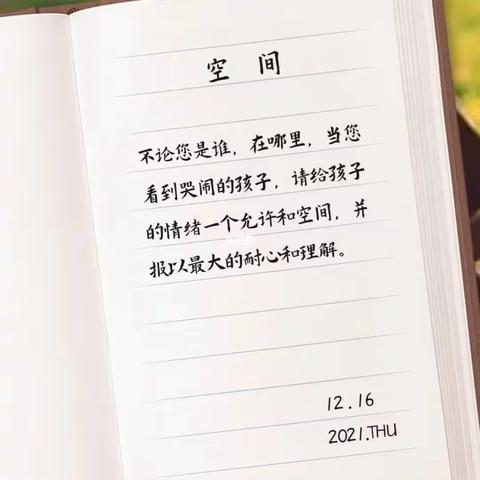 空 间
不论您是谁，在哪里，当您
看到哭闹的孩子，请给孩子
的情绪一个允许和空间，并
报以最大的耐心和理解。
12.16
2021.THU